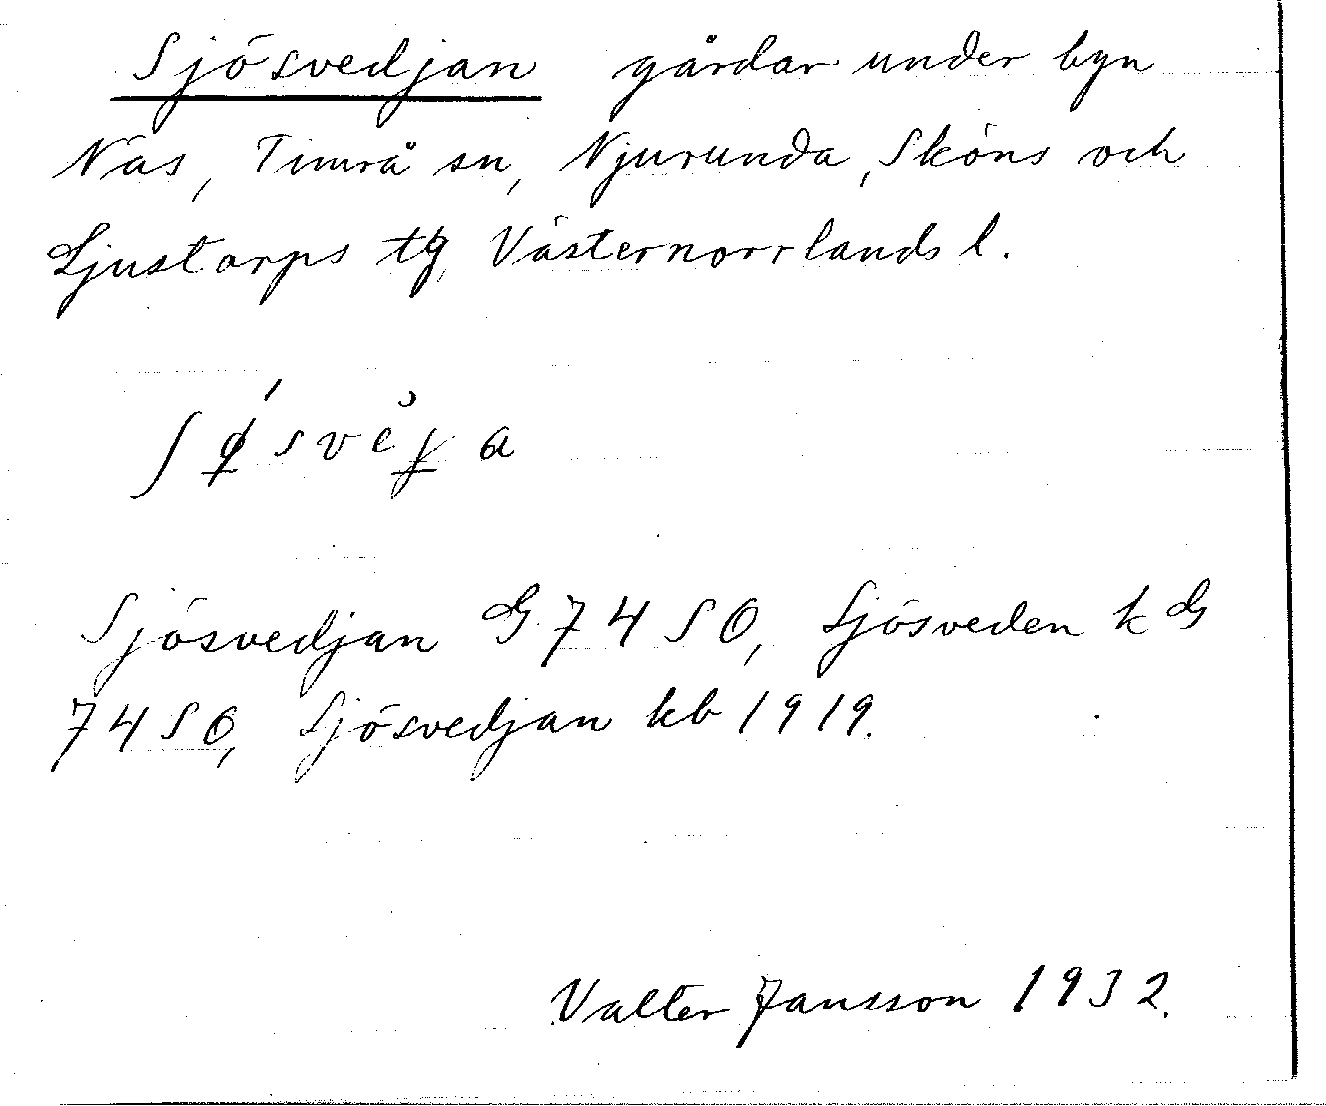 Sjösvedjan gårdar under byn
Näs, Timrå sn, Njurunda, Sköns och
Ljustorps tg, Västernorrlands l.
Sjösvedjan G 74 SO, Sjösveden k G
74 SO, Sjösvedjan kb 1919.
Valter Jansson 1932.